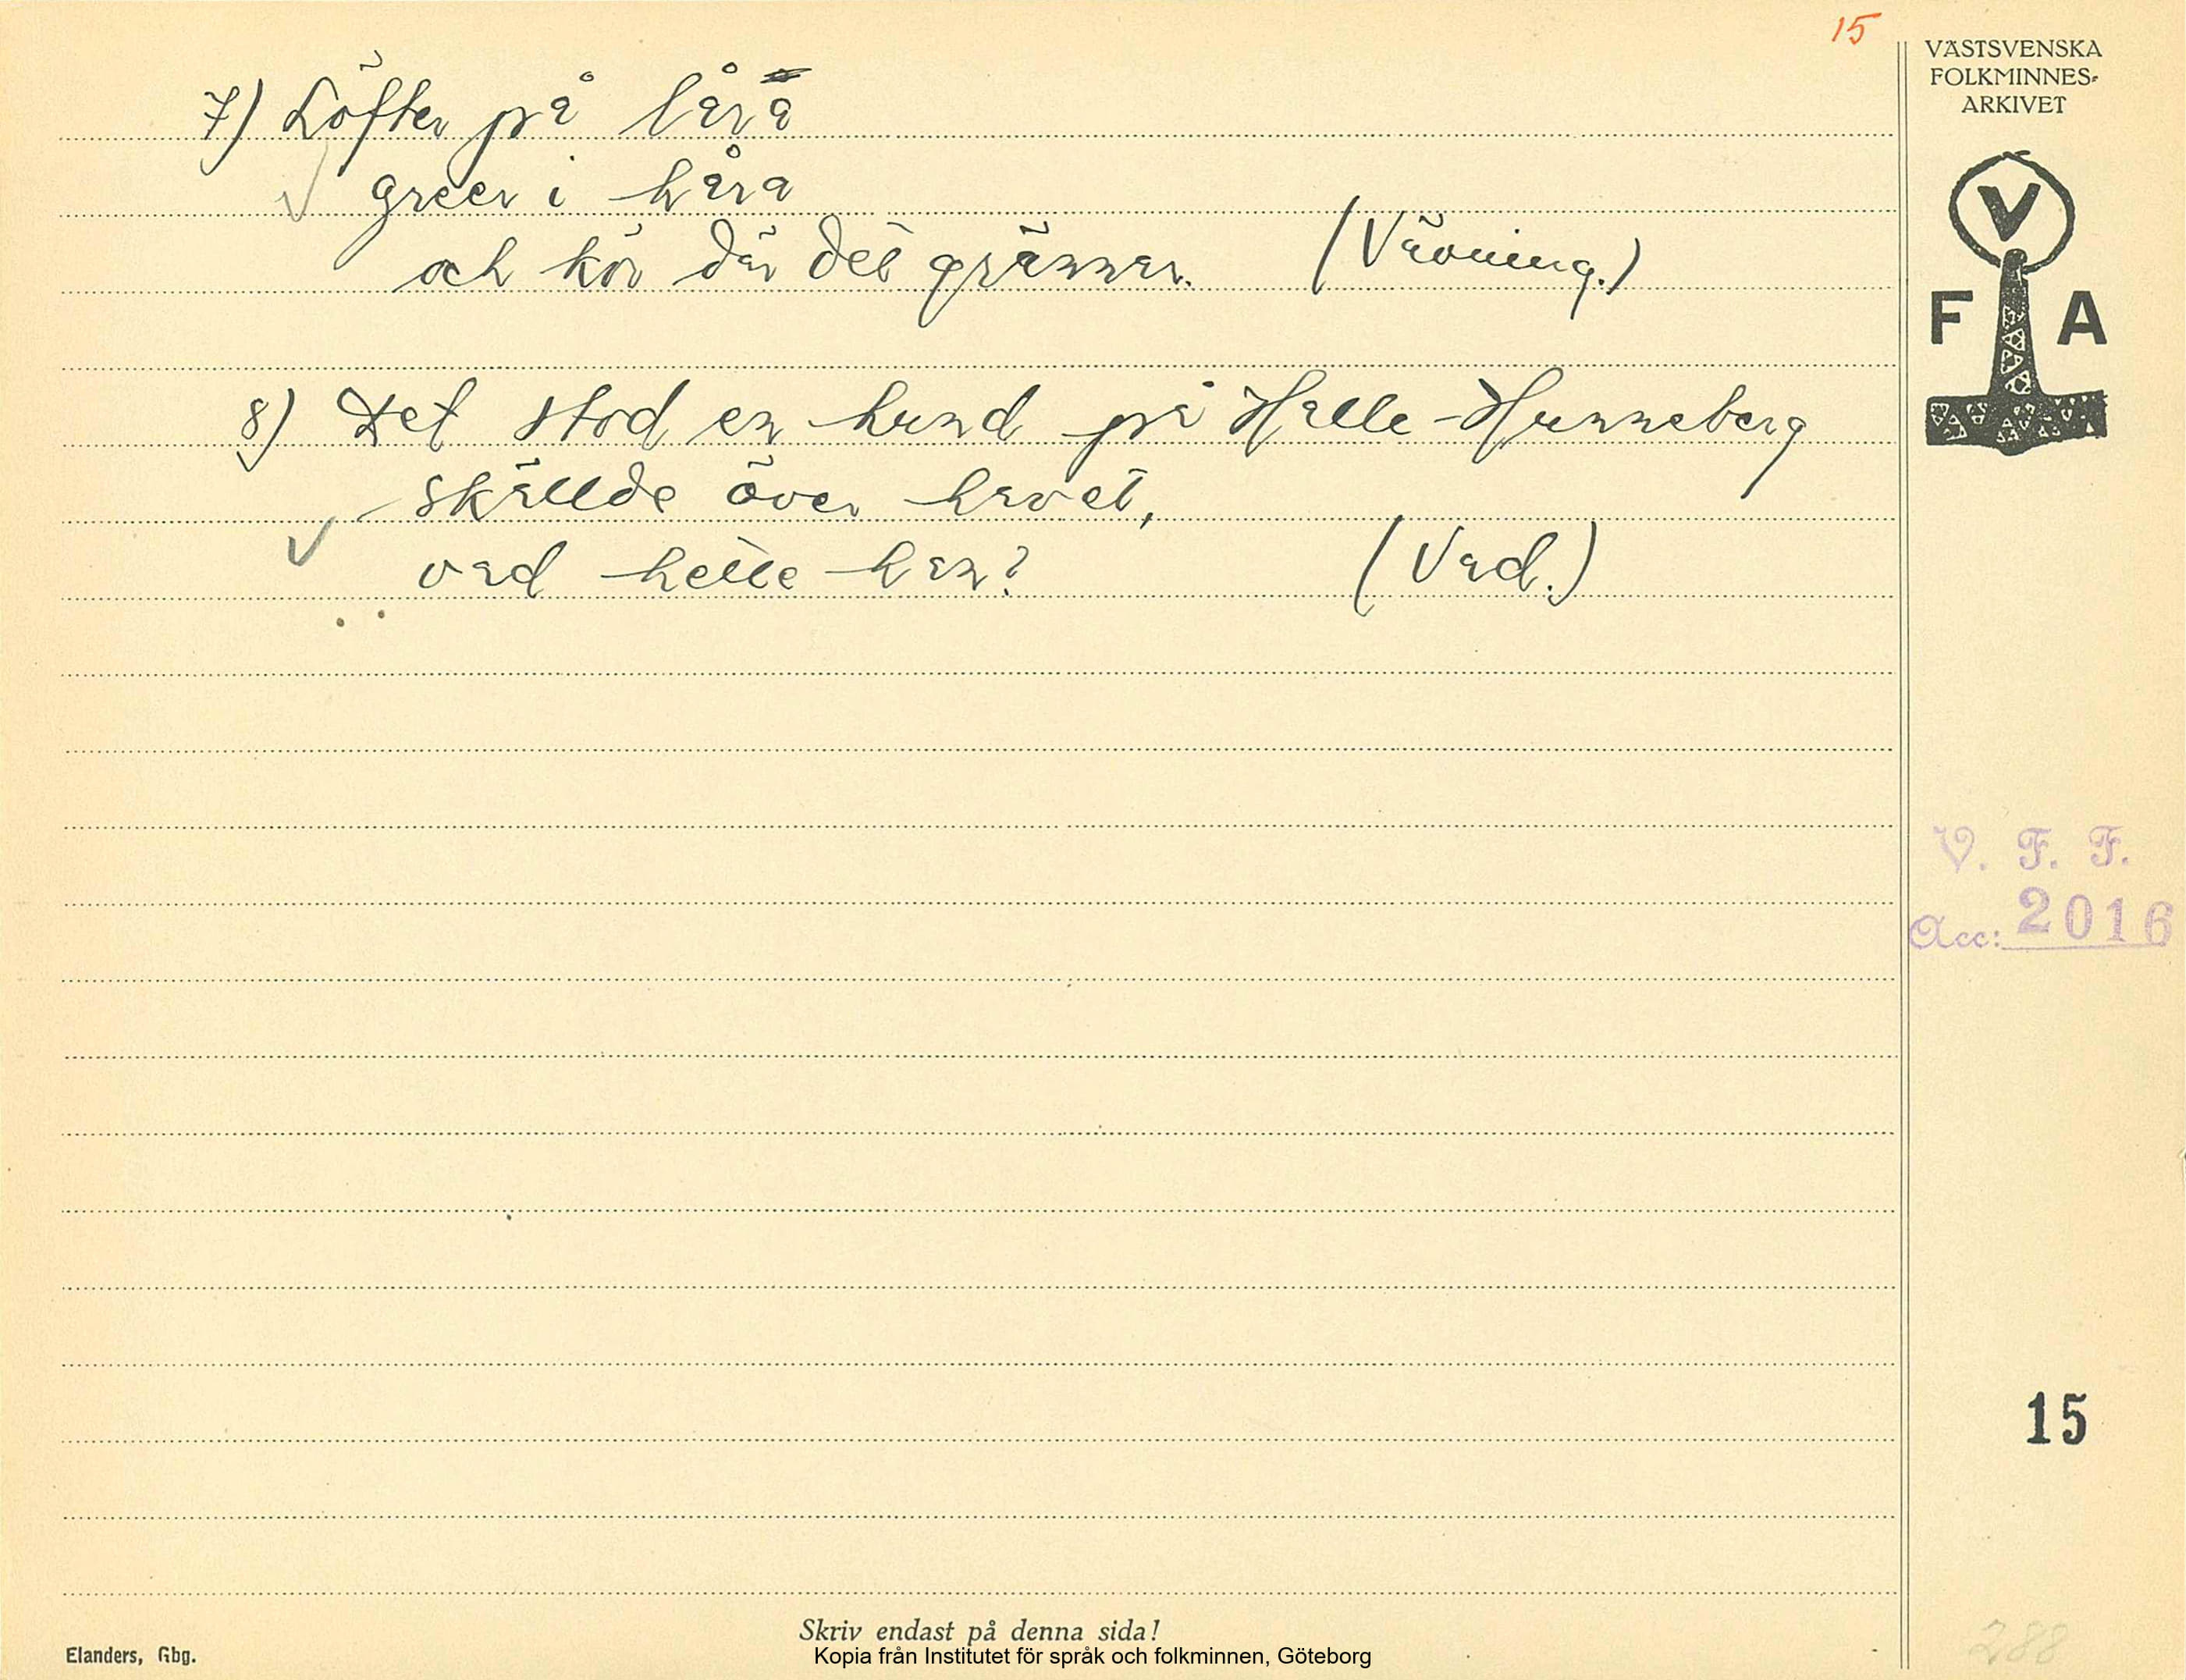 15
7) Löfter på låra
greer i håra
och kör där det grännar. (Vävning.)
8) Det stod en hund på Halle-Hunneberg
skällde över havet,
vad hette han? (Vad.)
VÄSTSVENSKA
FOLKMINNES-
ARKIVET
V
F A
V. F. F.
Acc: 2016
15
288
Skriv endast på denna sida!
Elanders, Gbg.
Kopia från Institutet för språk och folkminnen, Göteborg